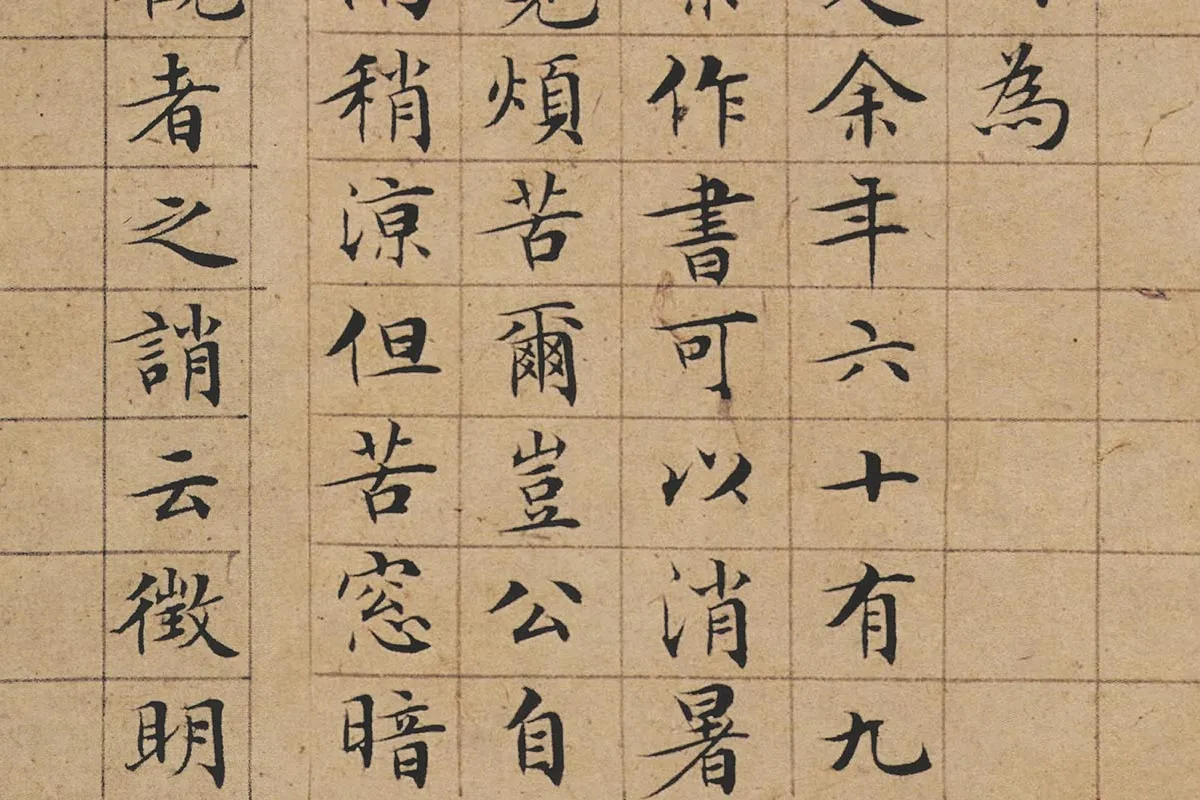 為
余年六十有九
作書可以消暑
煩苦爾豈公自
稍涼但苦窓暗
者之誚云徵明